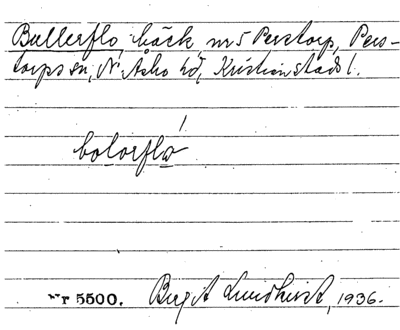 Bullerflo, bäck, nr 5 Perstorp, Pers-
torps sn, N. Åsbo hd, Kristianstads l.
bolorflo
Nr 5500. Birgit Lundkvist, 1936.